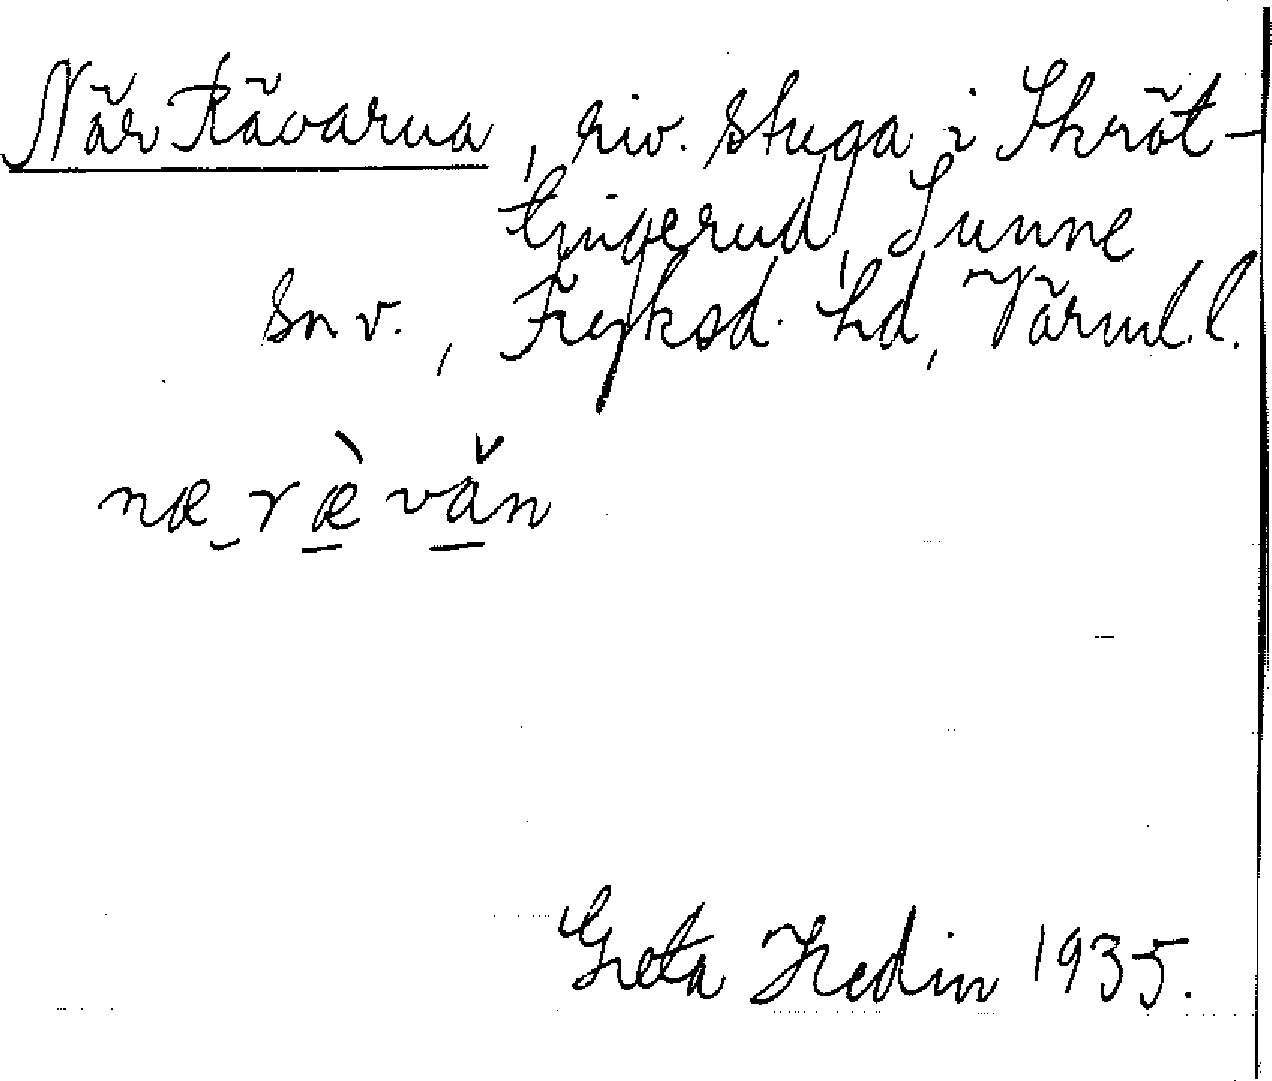 När Rävarna, riv. stuga i Skröt-
tjigerud, Sunne
sn v., Fryksd. hd, Värml. l.
næ ræ̀vǎn
Greta Hedin 1935.